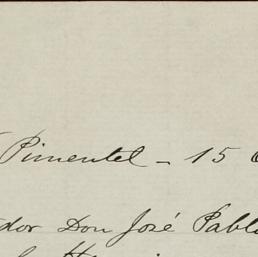 Pimentel - 15
dor Don José Pabl